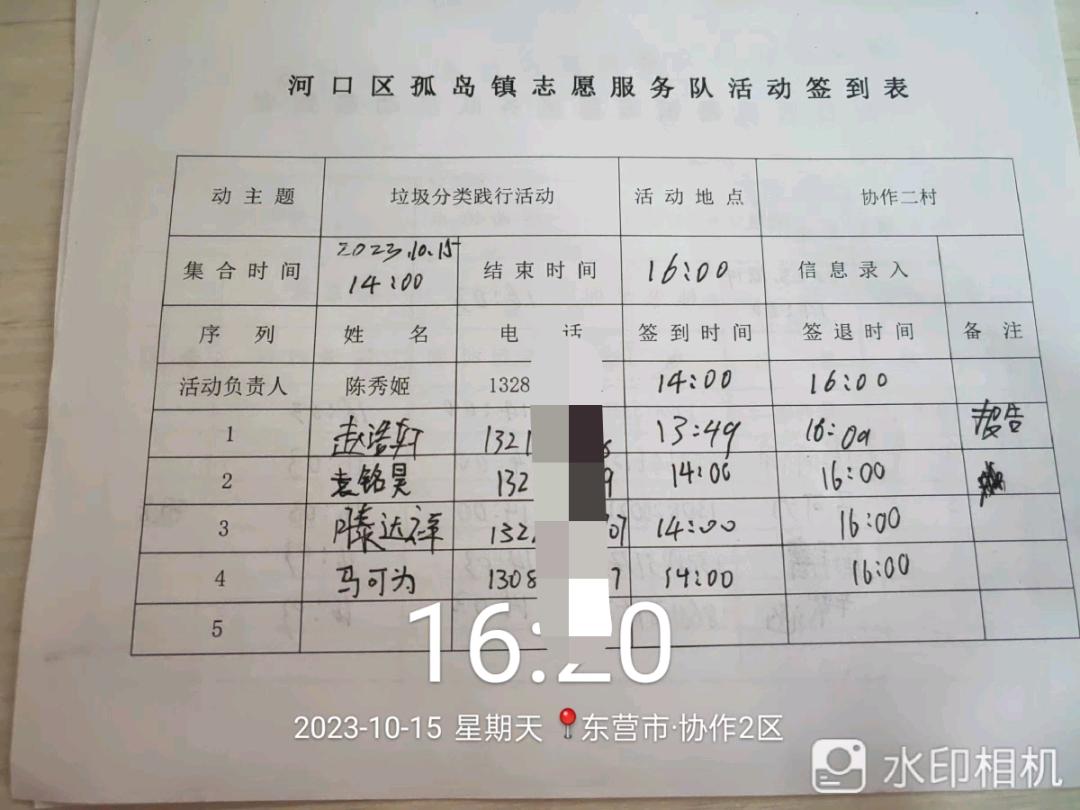 河口区孤岛镇志愿服务队活动签到表
动主题 垃圾分类践行活动 活动地点 协作二村
集合时间 2023.10.15 14:00 结束时间 16:00 信息录入
序列 姓名 电话 签到时间 签退时间 备注
活动负责人 陈秀姬 1328 14:00 16:00
1 赵浩轩 1321 13:49 16:00 报告
2 袁铭昊 132 9 14:06 16:00
3 滕达祥 132 07 14:00 16:00
4 马可为 1308 7 14:00 16:00
5
16:20
2023-10-15 星期天 东营市·协作2区
水印相机